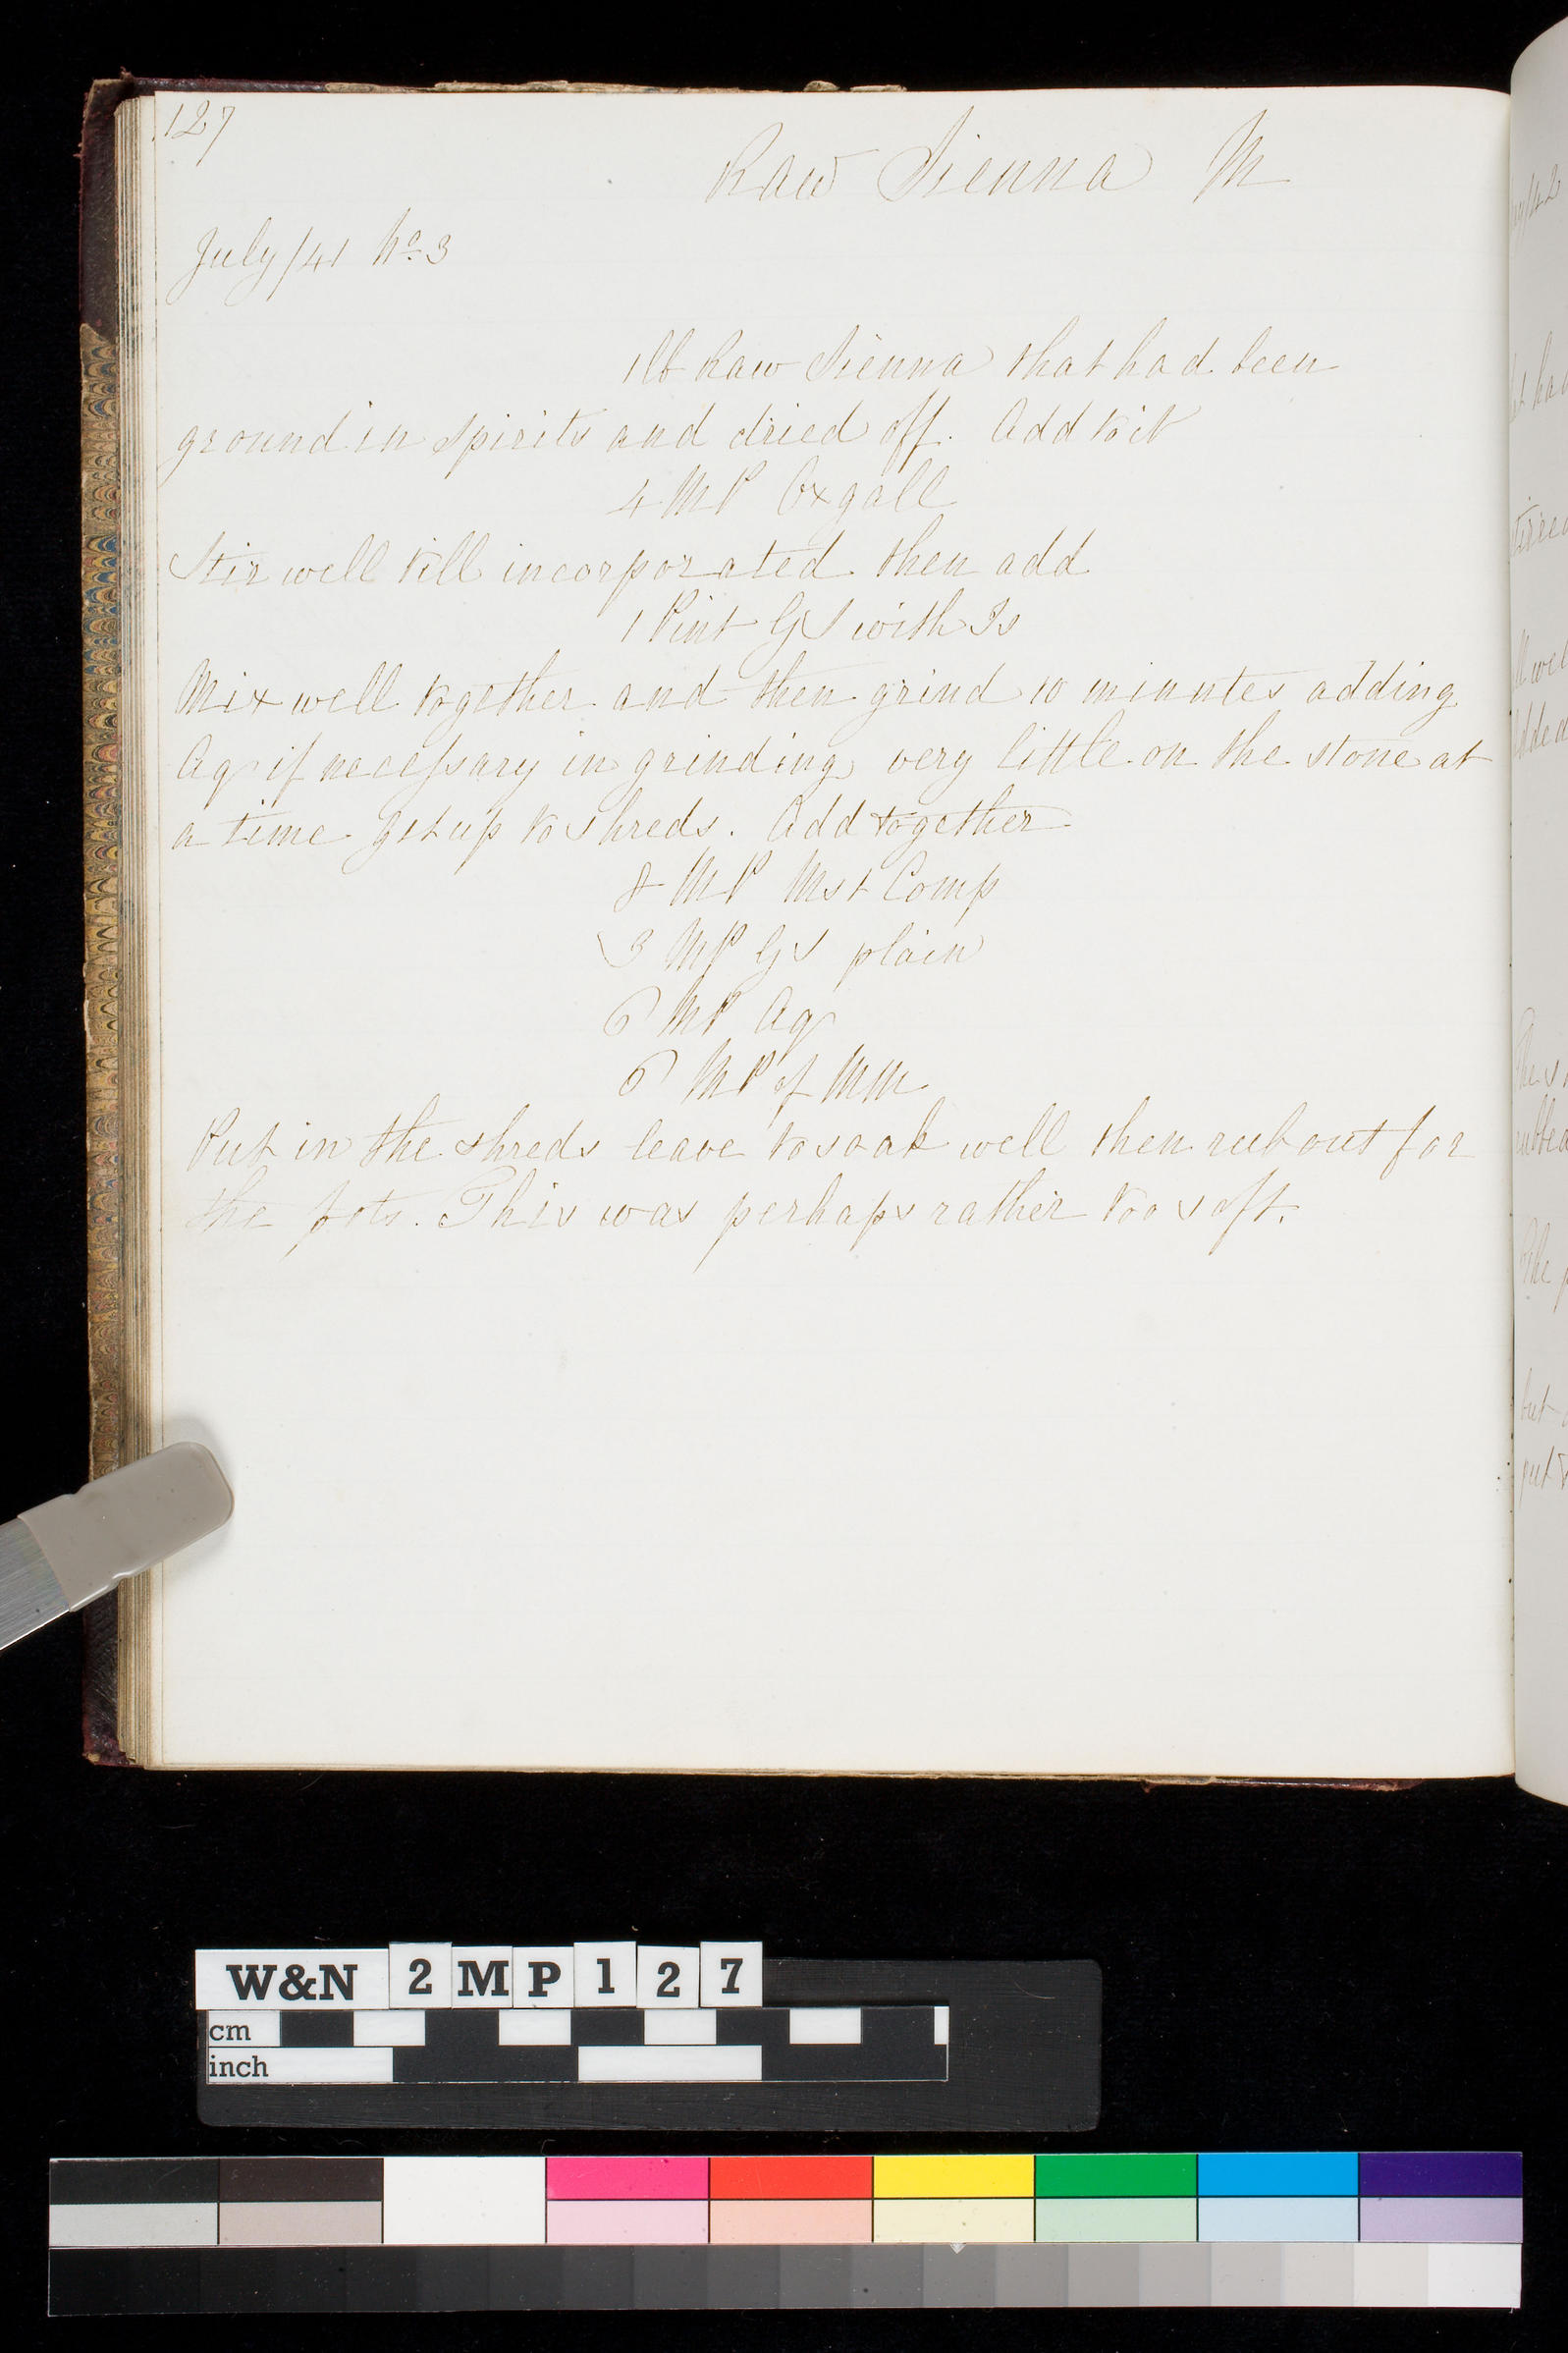 127
Raw Sienna M
July/41 No. 3
1 lb Raw Sienna that had been
ground in spirits and dried off. Add to it
4 MP Oxgall
Stir well till incorporated then add
1 Pint GS with Is
Mix well together and then grind 10 minutes adding
Aq if necessary in grinding very little on the stone at
a time get up to shreds. Add together
8 MP Mst Comp
3 MP GS plain
6 MP Aq
6 MP of MM
Put in the shreds leave to soak well then rub out for
the pots. This was perhaps rather too soft.
W&N 2 M P 1 2 7
cm
inch